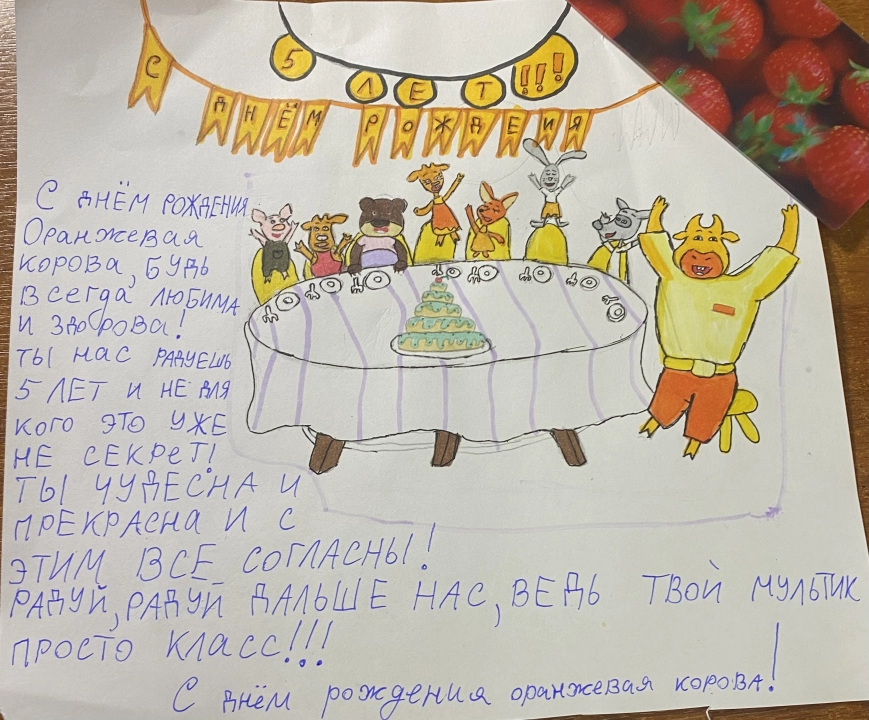 5 ЛЕТ !!!
С ДНЁМ РОЖДЕНИЯ
С ДНЁМ РОЖДЕНИЯ
Оранжевая
корова, БУДЬ
Всегда ЛЮБИМА
И Здорова!
ТЫ НАС РАДУЕШЬ
5 ЛЕТ И НЕ ДЛЯ
КОГО ЭТО УЖЕ
НЕ СЕКРеТ!
ТЫ ЧУДЕСНА И
ПРЕКРАСНА И С
ЭТИМ ВСЕ СОГЛАСНЫ!
РАДУЙ, РАДУЙ ДАЛЬШЕ НАС, ВЕДЬ ТВОЙ МУЛЬТИК
ПРОСТО КЛАСС!!!
С днём рождения оранжевая корова!